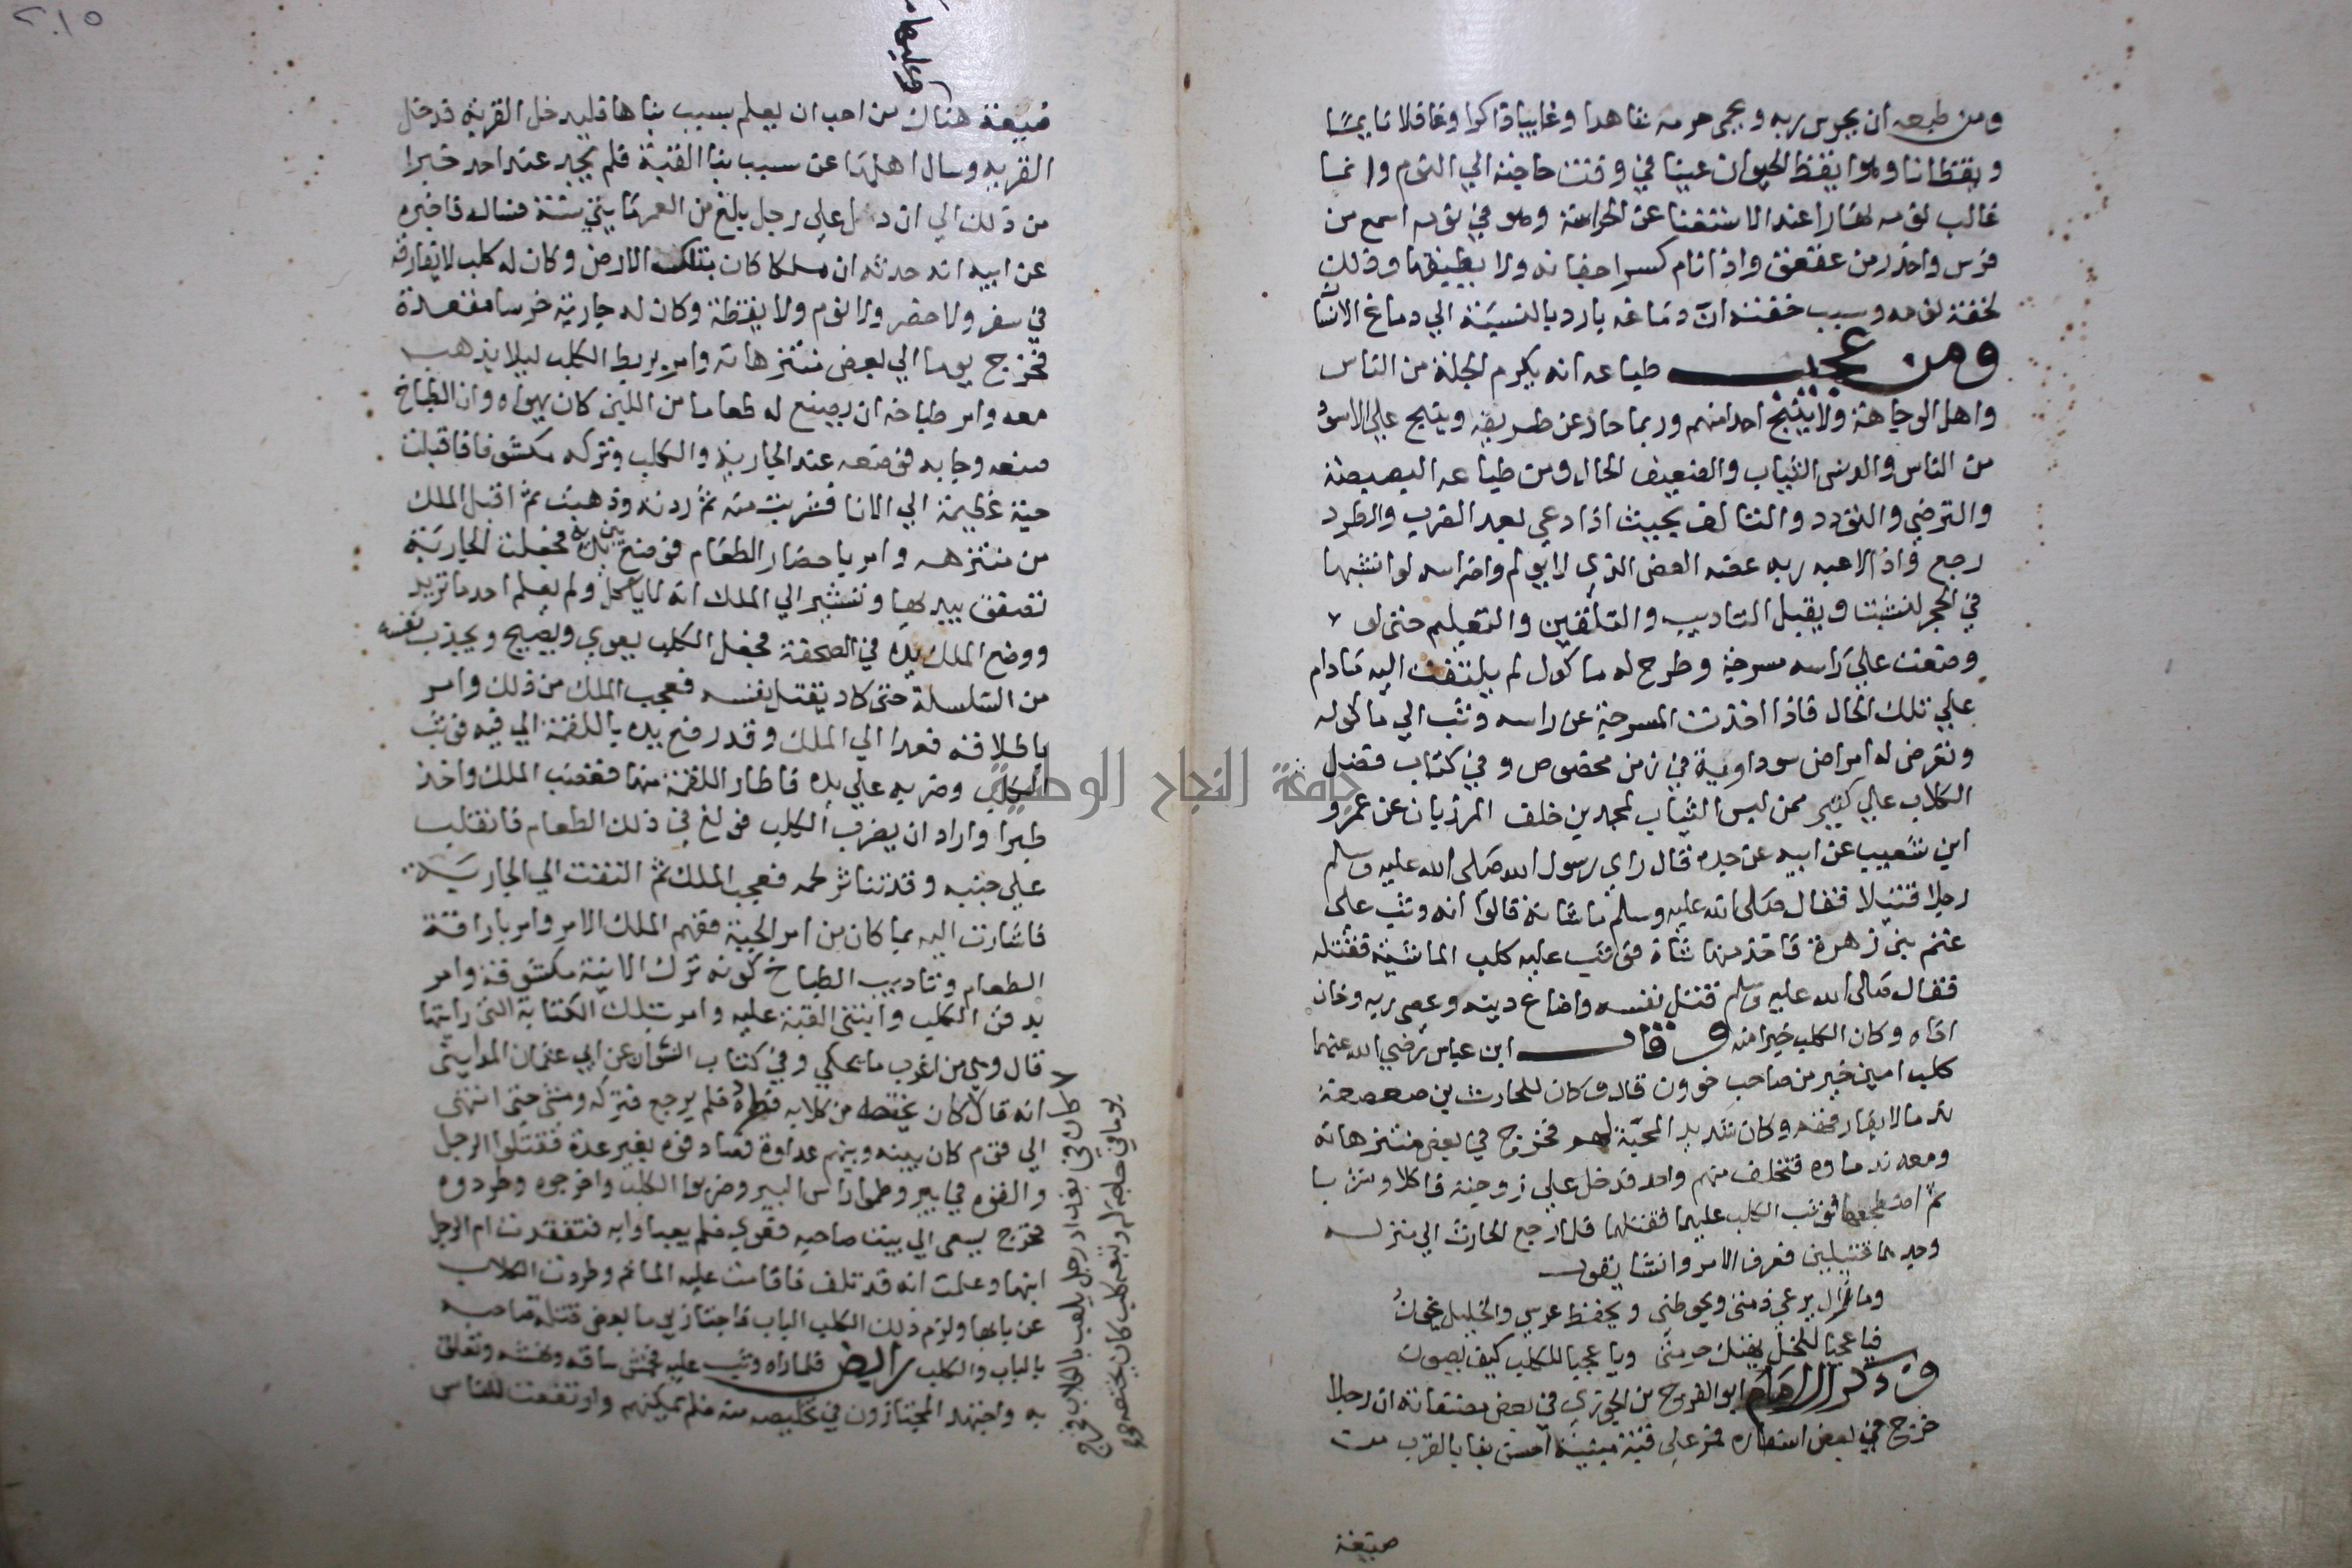 ومن طبعه ان يحرس ربه ويحمي حرمه شاهدا وغايبا ذاكرا وغافلا نايما
ويقظانا وهو ايقظ الحيوان عينا في وقت حاجته الي النوم وانما
غالب نومه نهارا عند الاستغنا عن الحراسة وهو في نومه اسمع من
فرس واحذر من عقعق واذا نام كسر اجفانه ولا يطبقها وذلك
لخفة نومه وسبب خفته ان دماغه بارد بالنسبة الي دماغ الانسا
ومن عجيب طباعه انه يكرم الجلة من الناس
واهل الوجاهة ولا ينبح احدا منهم وربما حاد عن طريقه وينبح علي الاسود
من الناس والدنس الثياب والضعيف الحال ومن طباعه البصبصة
والترضي والتودد والتالف بحيث اذا دعي بعد الضرب والطرد
رجع واذا لاعبه ربه عضه العض الذي لا يولم واضراسه لو انشبها
في الحجر لنشبت ويقبل التاديب والتلقين والتعليم حتي لو
وضعت علي راسه مسرجة وطرح له ماكول لم يلتفت اليه مادام
علي تلك الحال فاذا اخذت المسرجة عن راسه وثب الي ماكوله
وتعرض له امراض سوداوية في زمن مخصوص وفي كتاب فضل
الكلاب علي كثير ممن لبس الثياب لمحمد بن خلف المرزبان عن عمرو
ابن شعيب عن ابيه عن جده قال راي رسول الله صلي الله عليه وسلم
رجلا قتيلا فقال صلي الله عليه وسلم ما شانه قالوا انه وثب علي
غنم بني زهرة فاخذ منها شاة فوثب عليه كلب الماشية فقتله
فقال صلي الله عليه وسلم قتل نفسه واضاع دينه وعصي ربه وخان
اخاه وكان الكلب خيرا منه وقال ابن عباس رضي الله عنهما
كلب امين خير من صاحب خوون قال وكان للحارث بن صعصعة
ندما لا يفارقهم وكان شديد المحبة لهم فخرج في بعض متنزهاته
ومعه ندماوه فتخلف منهم واحد فدخل علي زوجته فاكلا وشربا
ثم اضطجعا فوثب الكلب عليهما فقتلهما فلما رجع الحارث الي منزله
وجدهما قتيلين فعرف الامر وانشا يقول
وما زال يرعي ذمتي ويحوطني ويحفظ عرسي والخليل يخون
فيا عجبا للخل يهتك حرمتي ويا عجبا للكلب كيف يصون
وذكر الامام ابو الفرج بن الجوزي في بعض مصنفاته ان رجلا
خرج في بعض اسفاره فمر علي قبة مبنية احسن بنا بالقرب من
ضيعة
وعليها
ضيعة هناك من احب ان يعلم بسبب بناها فليدخل القرية فدخل
القرية وسال اهلها عن سبب بنا القبة فلم يجد عند احد خبرا
من ذلك الي ان دخل علي رجل بلغ من العمر مايتي سنة فساله فاخبره
عن ابيه انه حدثه ان ملكا كان بتلك الارض وكان له كلب لا يفارقه
في سفر ولا حضر ولا نوم ولا يقظة وكان له جارية خرسا مقعدة
فخرج يوما الي بعض متنزهاته وامر بربط الكلب ليلا يذهب
معه وامر طباخه ان يصنع له طعاما من اللبن كان يهواه وان الطباخ
صنعه وجا به فوضعه عند الجارية والكلب وتركه مكشوفا فاقبلت
حية عظيمة الي الانا فشربت منه ثم ردته وذهبت ثم اقبل الملك
من متنزهه وامر باحضار الطعام فوضع بين يديه فجعلت الجارية
تصفق بيديها وتشير الي الملك انه لا ياكل ولم يعلم احد ما تريد
ووضع الملك يده في الصحفة فجعل الكلب يعوي ويصيح ويجذب نفسه
من السلسلة حتي كاد يقتل نفسه فعجب الملك من ذلك وامر
باطلاقه فعدا الي الملك وقد رفع يده باللقمة الي فيه فوثب
الكلب وضربه علي يده فاطار اللقمة منها فغضب الملك واخذ
طبرا واراد ان يضرب الكلب فولغ في ذلك الطعام فانقلب
علي جنبه وقد تناثر لحمه فعجب الملك ثم التفت الي الجارية
فاشارت اليه بما كان من امر الحية ففهم الملك الامر وامر باراقة
الطعام وتاديب الطباخ كونه ترك الانية مكشوفة وامر
بدفن الكلب وابتني القبة عليه وامر بتلك الكتابة التي رايتها
قال وهي من اغرب ما يحكي وفي كتاب النشوان عن ابي عثمان المدايني
انه قال كان يختصه من كلابه فطرده فلم يرجع فتركه ومشي حتي انتهي
الي قوم كان بينه وبينهم عداوة فصادفوه بغير عدة فقتلوا الرجل
والقوه في بير وطموا راس البير وضربوا الكلب واخرجوه وطردوه
فخرج يسعي الي بيت صاحبه فعوي فلم يعباوا به فتفقدت ام الرجل
ابنها وعلمت انه قد تلف فاقامت عليه الماتم وطردت الكلاب
عن بابها ولزم ذلك الكلب الباب فاجتاز يوما بعض قتلة صاحبه
بالباب والكلب رابض فلما راه وثب عليه فخمش ساقه ونهشه وتعلق
به واجتهد المجتازون في تخليصه منه فلم يمكنهم وارتفعت للناس
كان في بغداد رجل يلعب بالكلاب فخرج
يوما في حاجة له وتبعه كلب كان يختصه
جامعة النجاح الوطنية